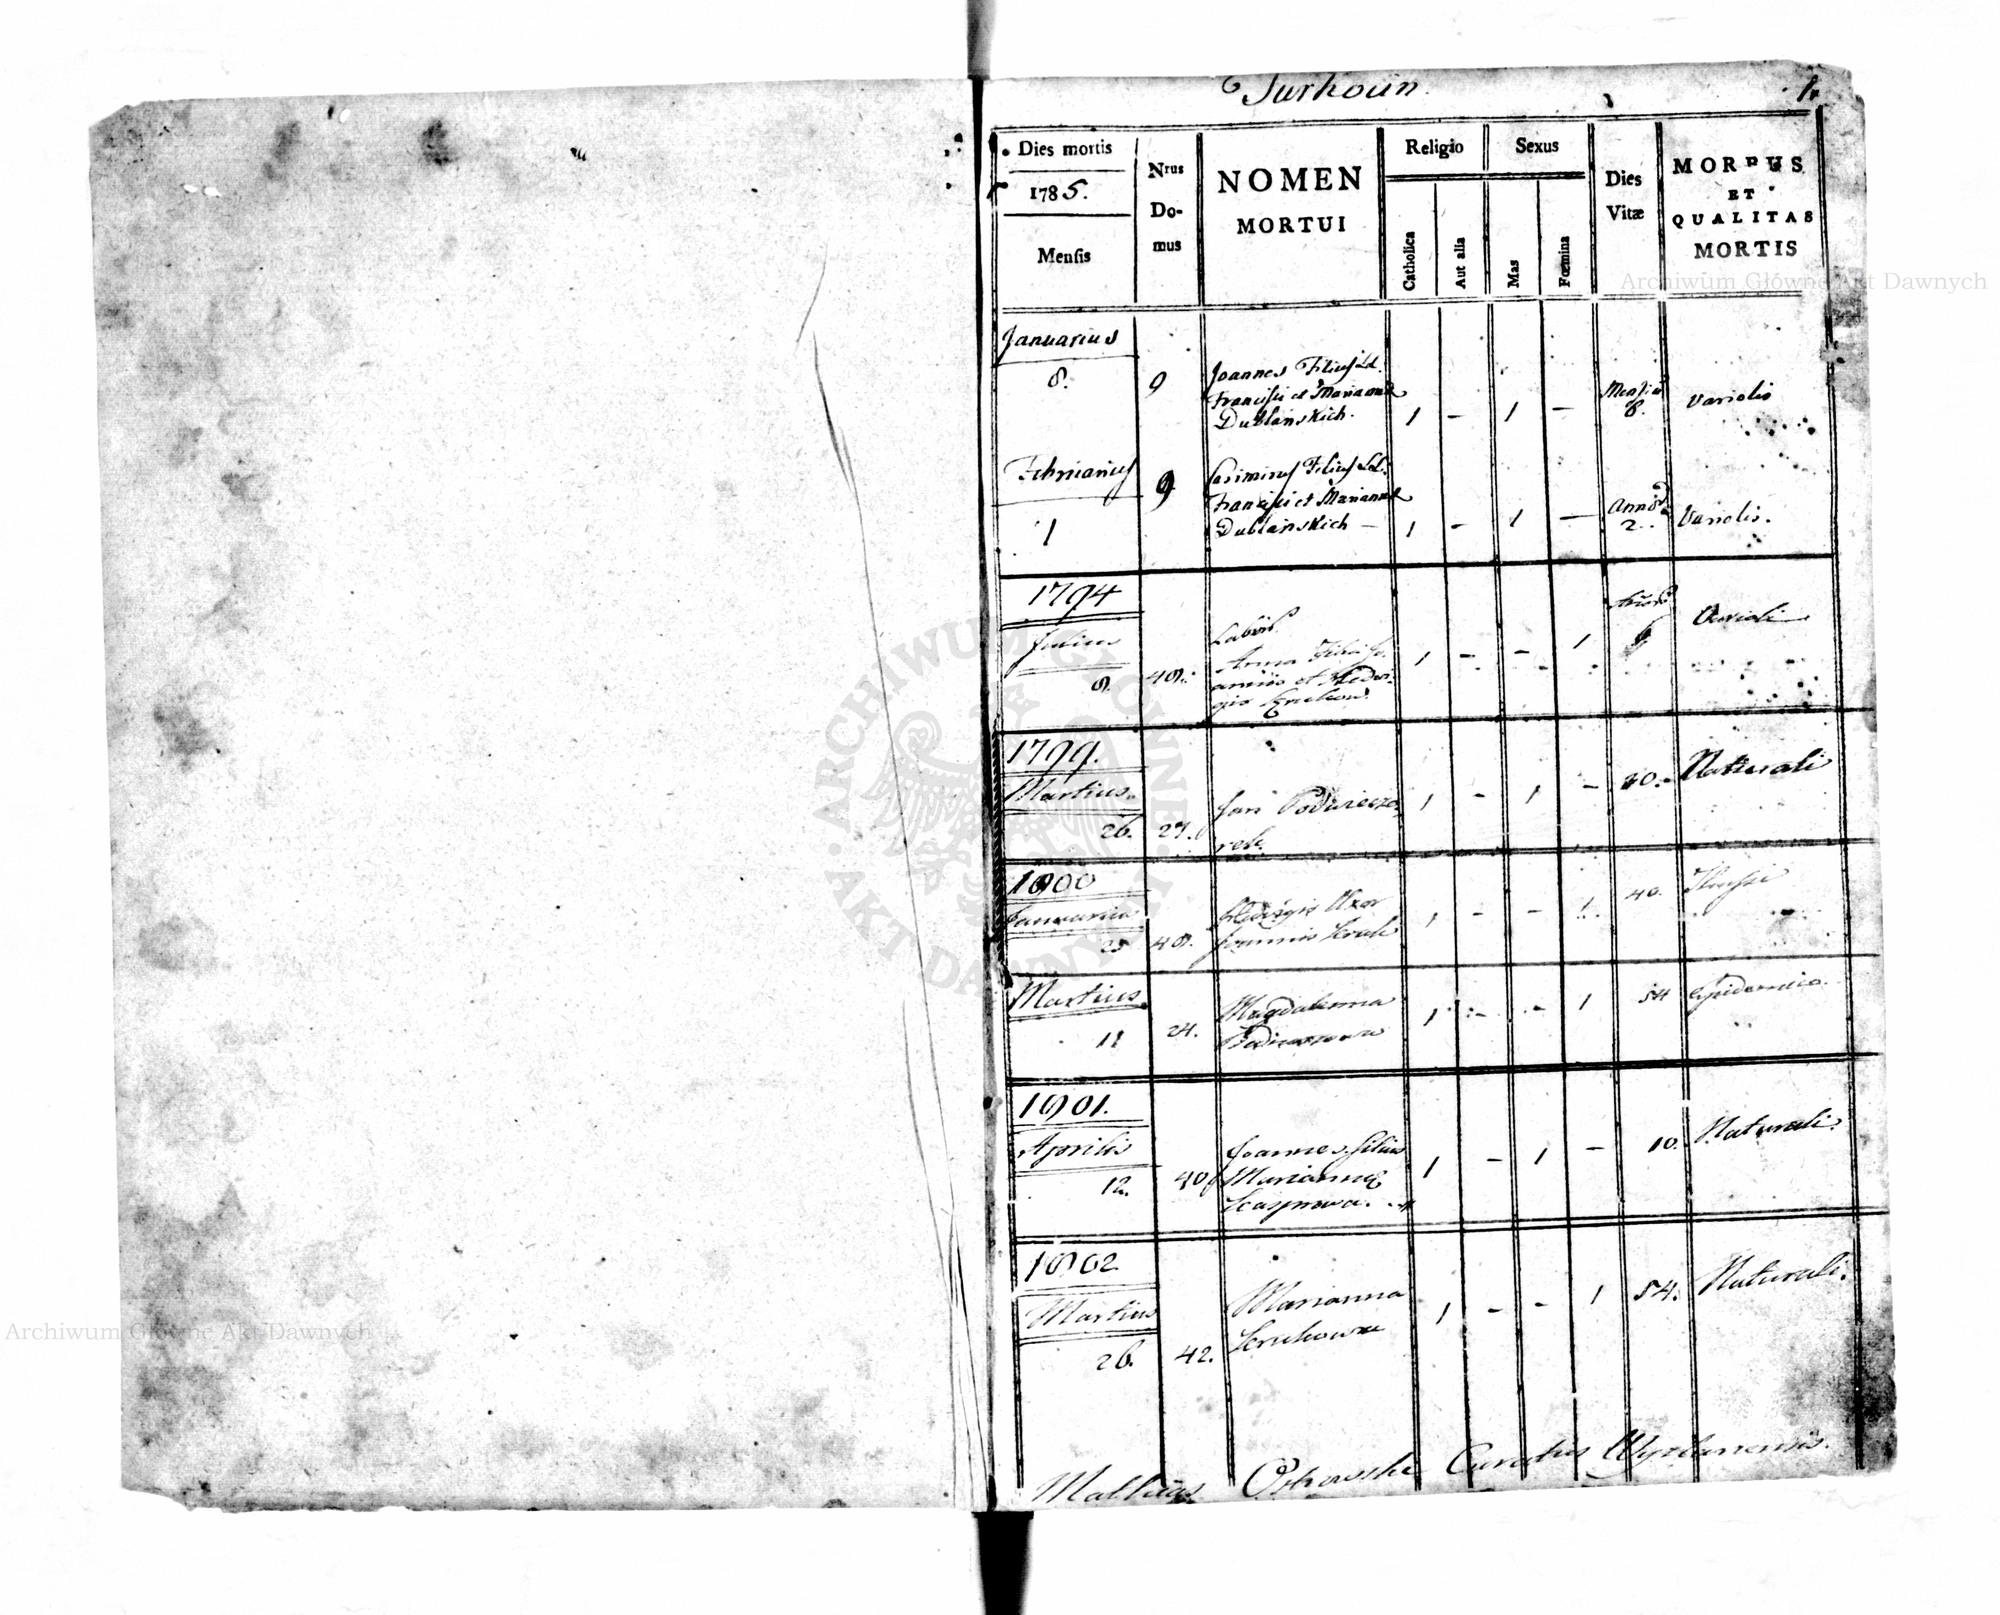 Turkocin 1.
Dies mortis
1785.
Mensis
Nrus
Do-
mus
NOMEN
MORTUI
Religio
Catholica
Aut alia
Sexus
Mas
Fœmina
Dies
Vitæ
MORBUS
ET
QUALITAS
MORTIS
Januarius
8. 9
Joannes Filius
Francisci et Mariannæ
Dublanskich. 1 - 1 -
8. Variolis
Februarius 9
1
Casimirus Filius
Francisci et Mariannæ
Dublanskich - 1 - 1 -
2. Variolis.
1794
Julius
8. 48.
Labor.
Anna Filia Jo-
annis et Hedvi-
gis 1 - - 1
1799.
Martius
26. 27.
Jan
1 - 1 - Naturali
1800
Januarius
48.
Hedvigis Uxor
Joannis 1 - - 1 40.
Martius
11 24.
Magdalenna
1 - - 1 54 Epidemica.
1801.
Aprilis
12. 40
Joannes filius
Mariannæ
1 - 1 - 10. Naturali.
1802
Martius
26. 42.
Marianna
1 - - 1 54. Naturali.
Mathias Curatus
Archiwum Główne Akt Dawnych
Archiwum Główne Akt Dawnych
ARCHIWUM GŁÓWNE
AKT DAWNYCH